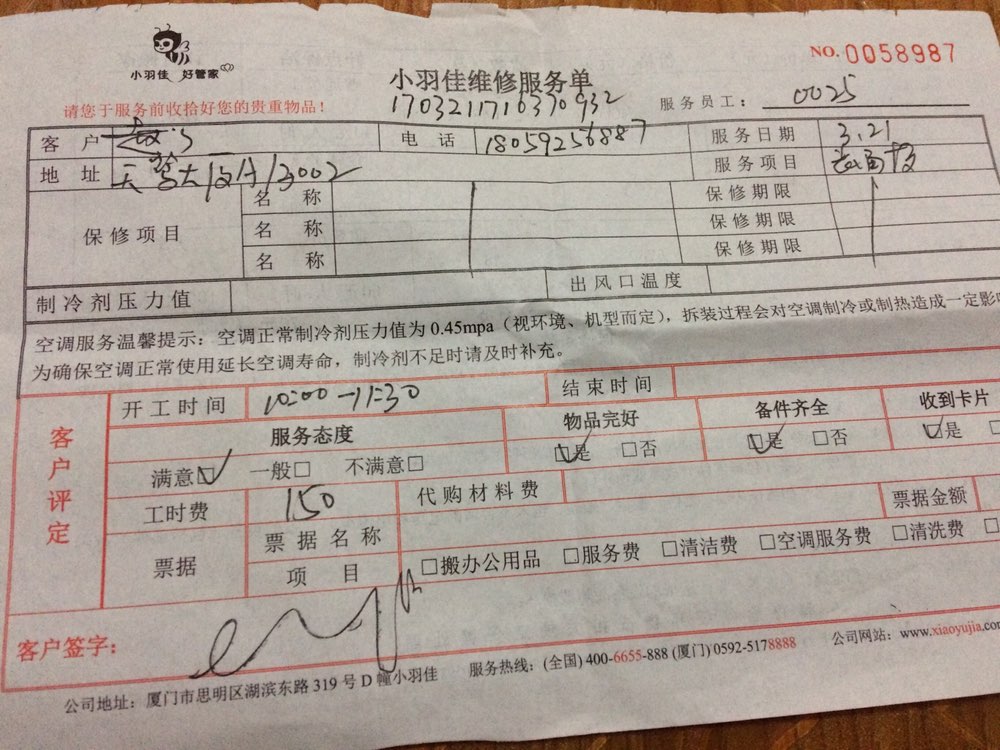 小羽佳 好管家
NO.0058987
小羽佳维修服务单
请您于服务前收拾好您的贵重物品！
1703211710370932
服务员工： 0025
客户 电话 18059256887 服务日期 3.21
地址 3002 服务项目
保修项目 名称 保修期限
名称 保修期限
名称 保修期限
制冷剂压力值 出风口温度
空调服务温馨提示：空调正常制冷剂压力值为 0.45mpa（视环境、机型而定），拆装过程会对空调制冷或制热造成一定影
为确保空调正常使用延长空调寿命，制冷剂不足时请及时补充。
客户评定
开工时间 10:00-11:30 结束时间
服务态度 物品完好 备件齐全 收到卡片
满意☑ 一般□ 不满意□ ☑是 □否 ☑是 □否 ☑是 □
工时费 150 代购材料费 票据金额
票据 票据名称
项目 □搬办公用品 □服务费 □清洁费 □空调服务费 □清洗费 □
客户签字：
公司地址：厦门市思明区湖滨东路 319 号 D 幢小羽佳 服务热线：(全国) 400-6655-888 (厦门) 0592-5178888 公司网站：www.xiaoyujia.co